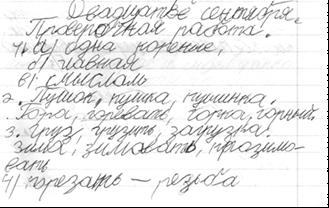 Двадцатое сентября.
Проверочная работа.
1. а) одна коренные,
б) главная
в) смыслом
2. Пушок, пушка, пушинка.
Гора, горевать, горка, горный.
3. Груз, грузить, загрузка.
Зима, зимовать, прозимо-
вать
4) порезать — резьба